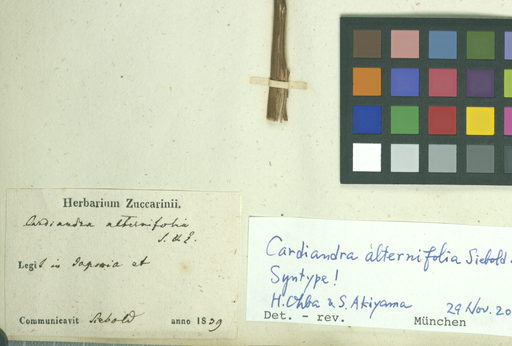 Herbarium Zuccarinii.
Cardiandra alternifolia
S. & Z.
Legit in Japonia et
Communicavit Siebold anno 1839
Cardiandra alternifolia Siebold.
Syntype!
H. Ohba & S. Akiyama 29 Nov. 20
Det. - rev. München